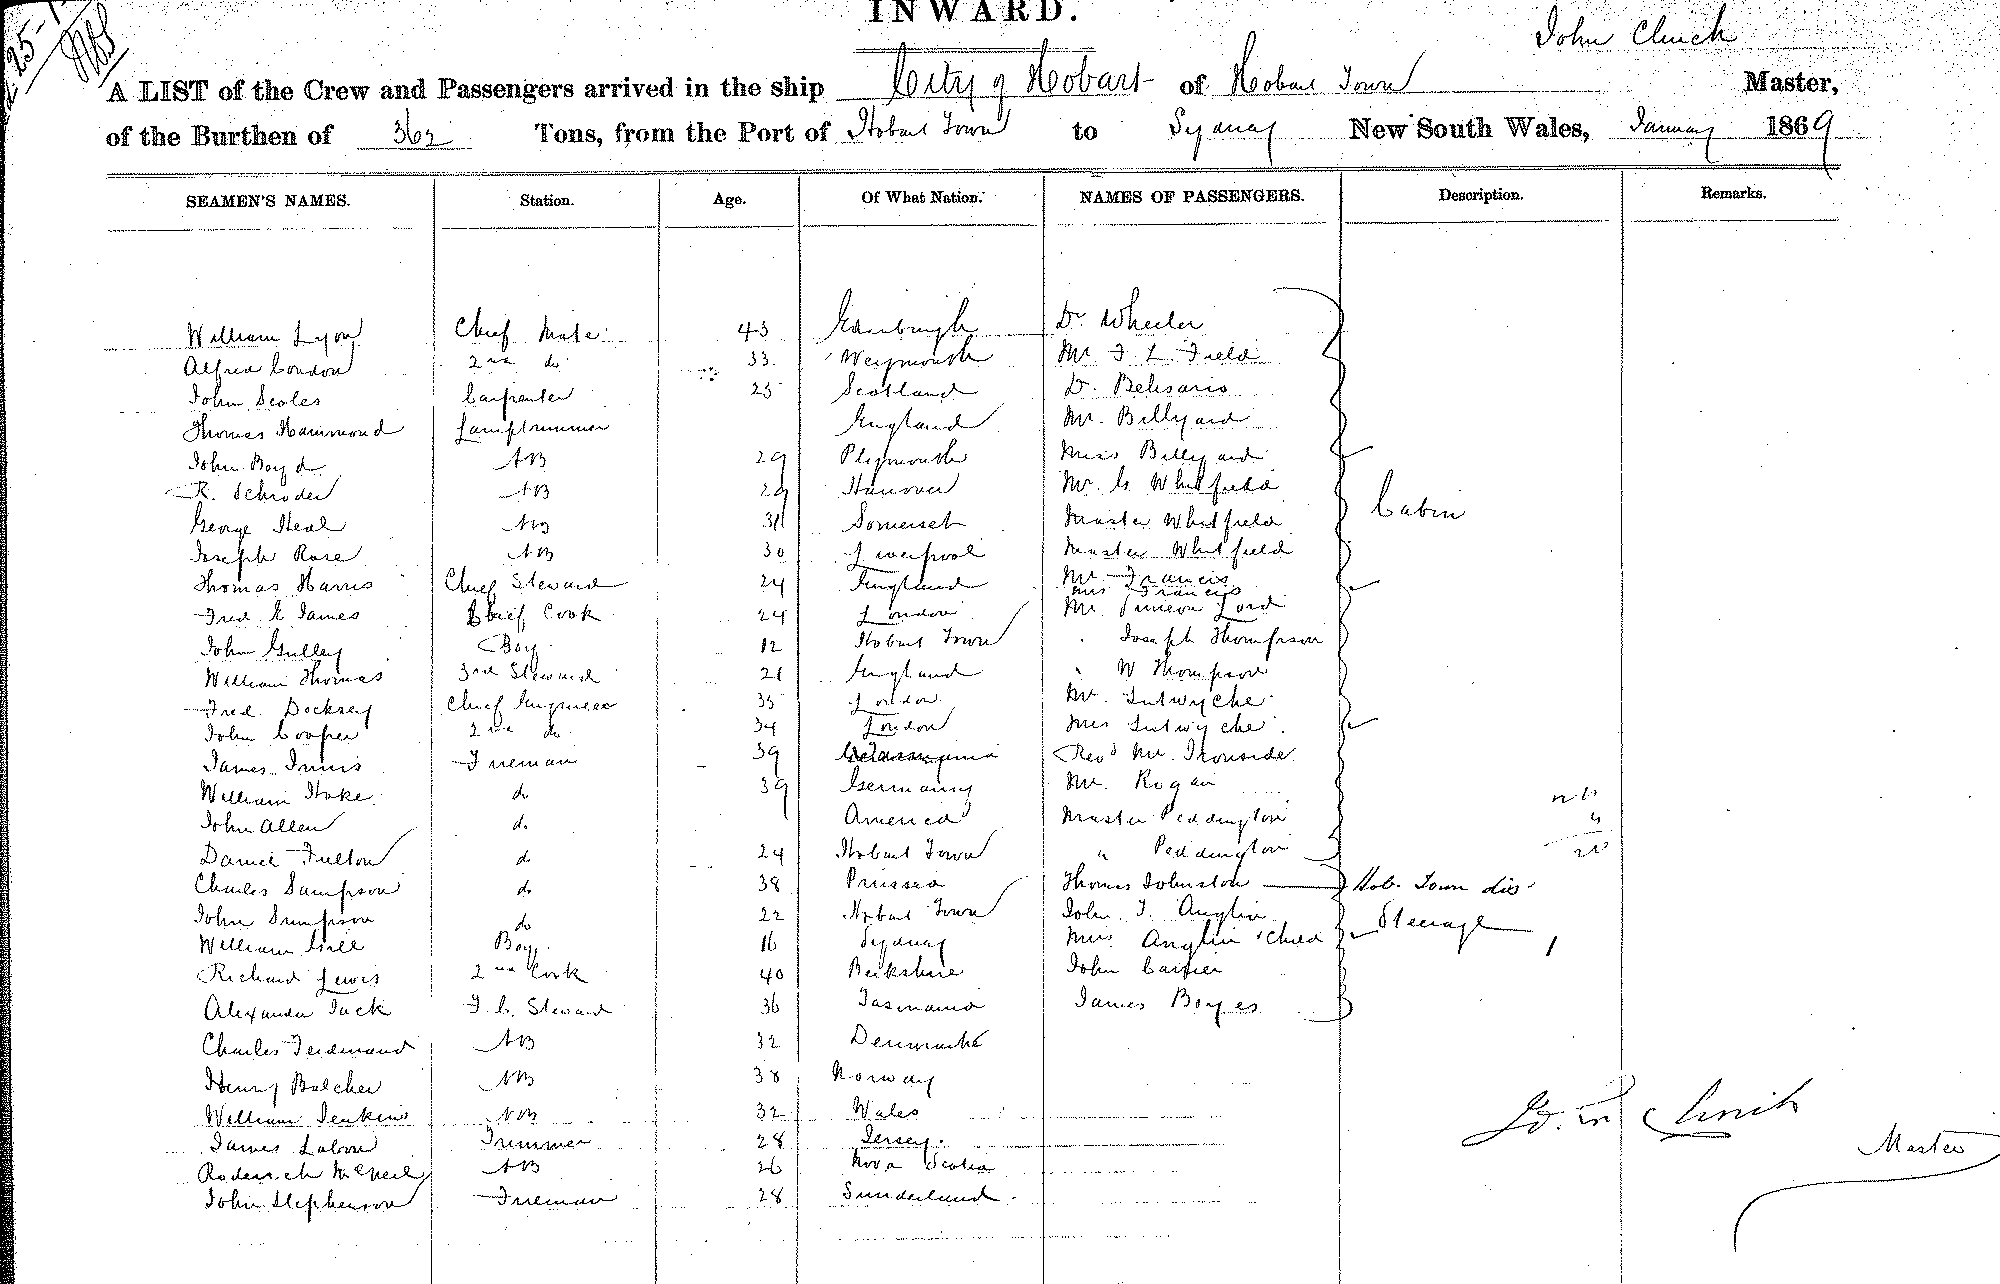 INWARD.
John Clinch
A LIST of the Crew and Passengers arrived in the ship City of Hobart of Hobart Town Master,
of the Burthen of 362 Tons, from the Port of Hobart Town to Sydney New South Wales, January 1869
SEAMEN'S NAMES. Station. Age. Of What Nation. NAMES OF PASSENGERS. Description. Remarks.
William Lyon Chief Mate 43 Edinburgh Dr Wheeler
Alfred Condon 2nd do 33 Weymouth Mr F L Field
John Scoles Carpenter 25 Scotland Dr. Belisario
Thomas Hammond Lamptrimmer England Mr. Billyard
John Boyd AB 29 Plymouth Miss Billyard
R. Schroder AB 29 Hanover Mr. G Whitfield Cabin
George Heal AB 31 Somerset Master Whitfield
Joseph Rose AB 30 Liverpool Master Whitfield
Thomas Harris Chief Steward 24 England Mr Francis
Mrs Francis
Fred K James Chief Cook 24 London Mr Simeon Lord
John Gulley Boy 12 Hobart Town " Joseph Thompson
William Thomas 3rd Steward 21 England " W Thompson
Fred Docksey Chief Engineer 35 London Mr. Lutwyche
John Cooper 2nd do 34 London Mrs Lutwyche
James Innis Fireman 39 Revd Mr. Ironside
William Hoke do 39 Germany Mr. Rogan
John Allen do America Master Peddington
Daniel Fulton do 24 Hobart Town " Peddington
Charles Sampson do 38 Prussia Thomas Johnston Hob. Town dis
John Simpson do 22 Hobart Town John T. Anglin Steerage
William Gill Boy 16 Sydney Mrs Anglin & Child 1
Richard Lewis 2nd Cook 40 Berkshire John
Alexander Jack F. C. Steward 36 Tasmania James Boyes
Charles Ferdinand AB 32 Denmark
Henry Balcher AB 38 Norway
William Jenkins AB 32 Wales
James Labon Trimmer 28 Jersey.
Roderick McNeil AB 26 Nova Scotia
John Stephenson Fireman 28 Sunderland
Jo. W Clinch
Master